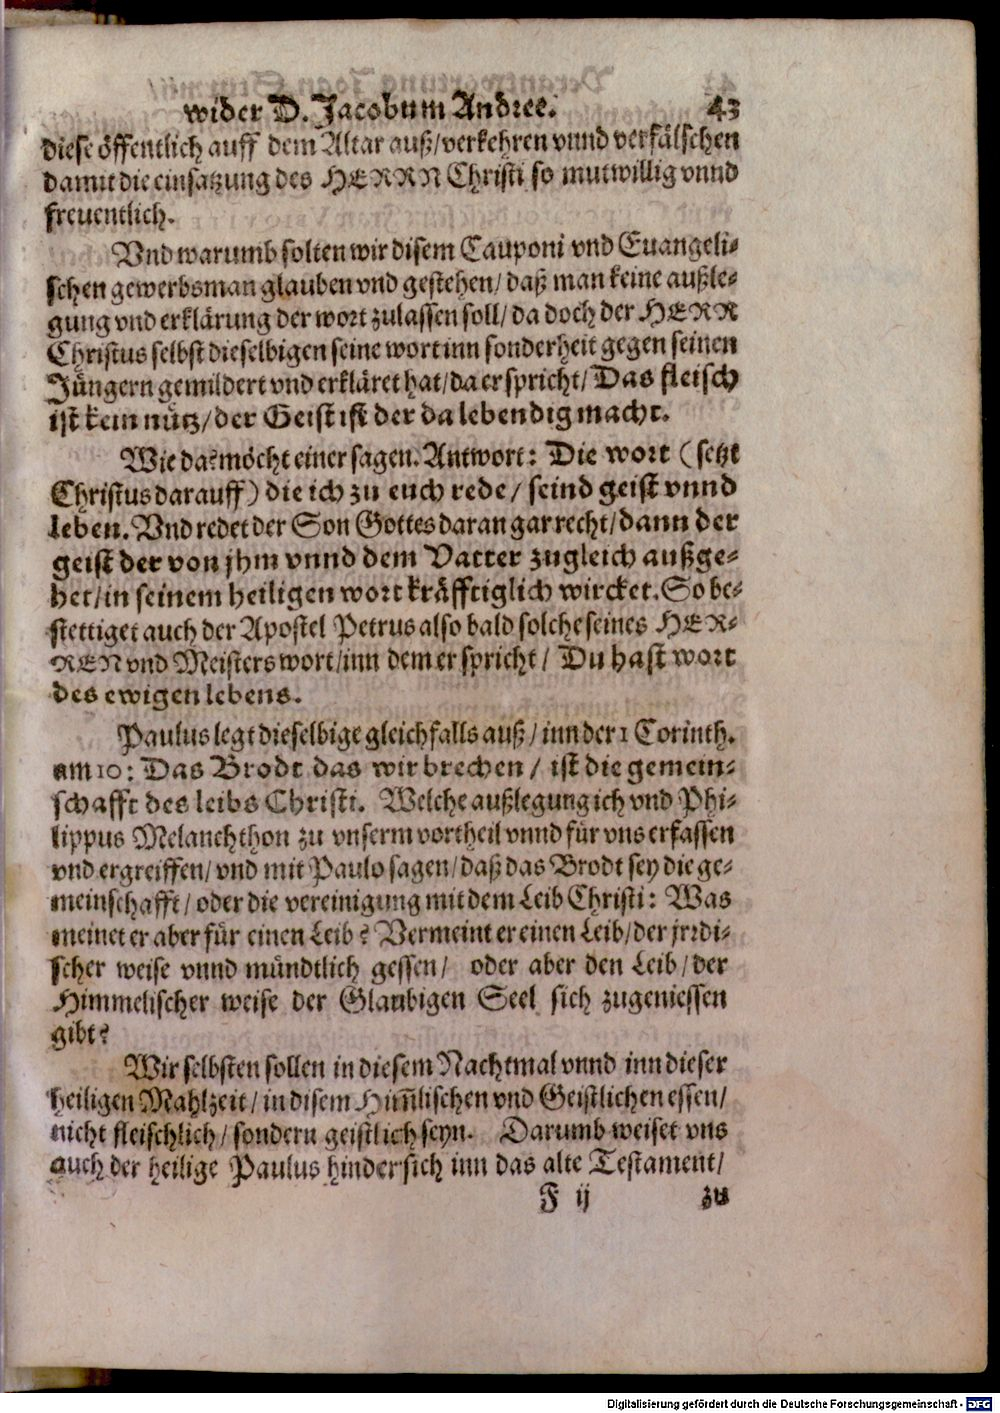 wider D. Jacobum Andree. 43
diese öffentlich auff dem Altar auß/verkehren vnnd verfälschen
damit die einsatzung des HERRN Christi so mutwillig vnnd
freuentlich.
Vnd warumb solten wir disem Cauponi vnd Euangeli-
schen gewerbsman glauben vnd gestehen/ daß man keine außle-
gung vnd erklärung der wort zulassen soll/ da doch der HERR
Christus selbst dieselbigen seine wort inn sonderheit gegen seinen
Jüngern gemildert vnd erkläret hat/da er spricht/ Das fleisch
ist kein nütz/der Geist ist der da lebendig macht.
Wie da? möcht einer sagen. Antwort: Die wort (setzt
Christus darauff) die ich zu euch rede/ seind geist vnnd
leben. Vnd redet der Son Gottes daran gar recht/dann der
geist der von jhm vnnd dem Vatter zugleich außge-
het/in seinem heiligen wort kräfftiglich wircket. So be-
stettiget auch der Apostel Petrus also bald solche seines HER-
REN vnd Meisters wort/inn dem er spricht/ Du hast wort
des ewigen lebens.
Paulus legt dieselbige gleichfalls auß/ inn der 1 Corinth.
am 10: Das Brodt das wir brechen/ ist die gemein-
schafft des leibs Christi. Welche außlegung ich vnd Phi-
lippus Melanchthon zu vnserm vortheil vnnd für vns erfassen
vnd ergreiffen/ vnd mit Paulo sagen/ daß das Brodt sey die ge-
meinschafft/ oder die vereinigung mit dem Leib Christi: Was
meinet er aber für einen Leib? Vermeint er einen Leib/der jrrdi-
scher weise vnnd mündtlich gessen/ oder aber den Leib/ der
Himmelischer weise der Glaubigen Seel sich zugeniessen
gibt?
Wir selbsten sollen in diesem Nachtmal vnnd inn dieser
heiligen Mahlzeit/ in disem Him̃lischen vnd Geistlichen essen/
nicht fleischlich/ sondern geistlich seyn. Darumb weiset vns
auch der heilige Paulus hindersich inn das alte Testament/
F ij zu
Digitalisierung gefördert durch die Deutsche Forschungsgemeinschaft - DFG